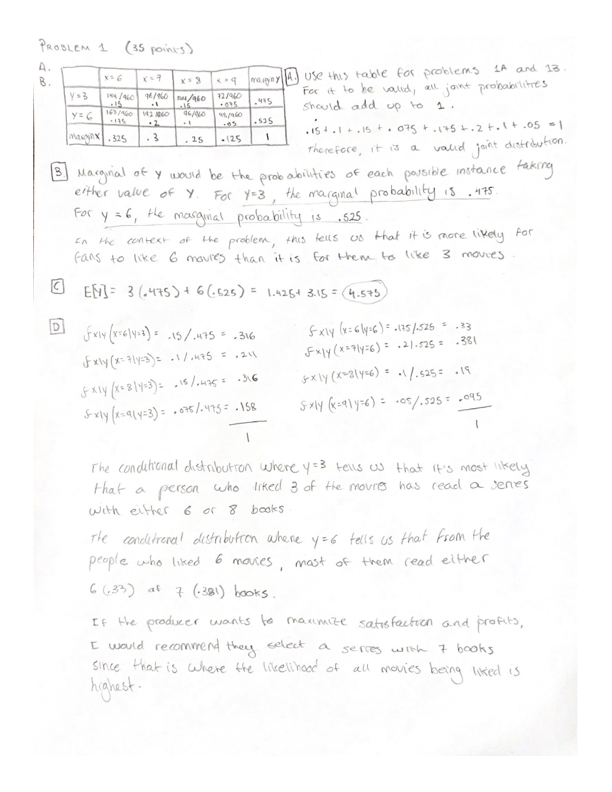 PROBLEM 1 (35 points)
A.
B.
x=6 x=7 x=8 x=9 margin y
y=3 144/960 96/960 144/960 72/960 .475
.15 .1 .15 .075
y=6 192/960 96/960 48/960 .525
.2 .1 .05
margin x .325 .3 .25 .125 1
A. Use this table for problems 1A and 1B.
For it to be valid, all joint probabilities
should add up to 1.
.15 + .1 + .15 + .075 + .175 + .2 + .1 + .05 = 1
Therefore, it is a valid joint distribution.
B Marginal of Y would be the probabilities of each possible instance taking
either value of Y. For Y=3, the marginal probability is .475.
For y=6, the marginal probability is .525.
In the context of the problem, this tells us that it is more likely for
fans to like 6 movies than it is for them to like 3 movies.
C E[Y] = 3(.475) + 6(.525) = 1.425 + 3.15 = 4.575
D fx|y (x=6|y=3) = .15/.475 = .316
fx|y (x=7|y=3) = .1/.475 = .211
fx|y (x=8|y=3) = .15/.475 = .316
fx|y (x=9|y=3) = .075/.475 = .158
1
fx|y (x=6|y=6) = .175/.525 = .33
fx|y (x=7|y=6) = .2/.525 = .381
fx|y (x=8|y=6) = .1/.525 = .19
fx|y (x=9|y=6) = .05/.525 = .095
1
The conditional distribution where y=3 tells us that it's most likely
that a person who liked 3 of the movies has read a series
with either 6 or 8 books
The conditional distribution where y=6 tells us that from the
people who liked 6 movies, most of them read either
6 (.33) or 7 (.381) books.
If the producer wants to maximize satisfaction and profits,
I would recommend they select a series with 7 books
since that is where the likelihood of all movies being liked is
highest.